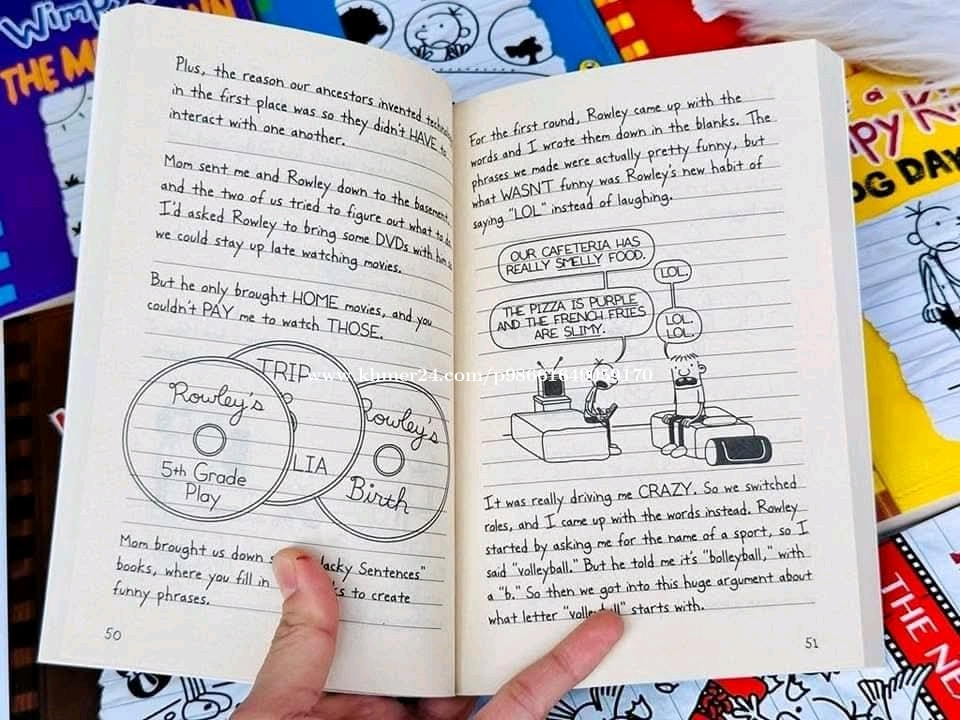 Wimpy
THE M
Plus, the reason our ancestors invented
in the first place was so they didn't HAVE to
interact with one another.
Mom sent me and Rowley down to the basement,
and the two of us tried to figure out what to
I'd asked Rowley to bring some DVDs with
we could stay up late watching movies.
But he only brought HOME movies, and you
couldn't PAY me to watch THOSE.
Rowley's
5th Grade
Play
TRIP
LIA
Rowley's
Birth
Mom brought us down Wacky Sentences"
books, where you fill in to create
funny phrases.
50
For the first round, Rowley came up with the
words and I wrote them down in the blanks. The
phrases we made were actually pretty funny, but
what WASN'T funny was Rowley's new habit of
saying "LOL" instead of laughing.
OUR CAFETERIA HAS
REALLY SMELLY FOOD.
LOL.
THE PIZZA IS PURPLE
AND THE FRENCH FRIES
ARE SLIMY.
LOL.
LOL.
It was really driving me CRAZY. So we switched
roles, and I came up with the words instead. Rowley
started by asking me for the name of a sport, so I
said "volleyball." But he told me it's "bolleyball," with
a "b." So then we got into this huge argument about
what letter "volleyball" starts with.
51
a
py Ki
OG DAY
THE NE